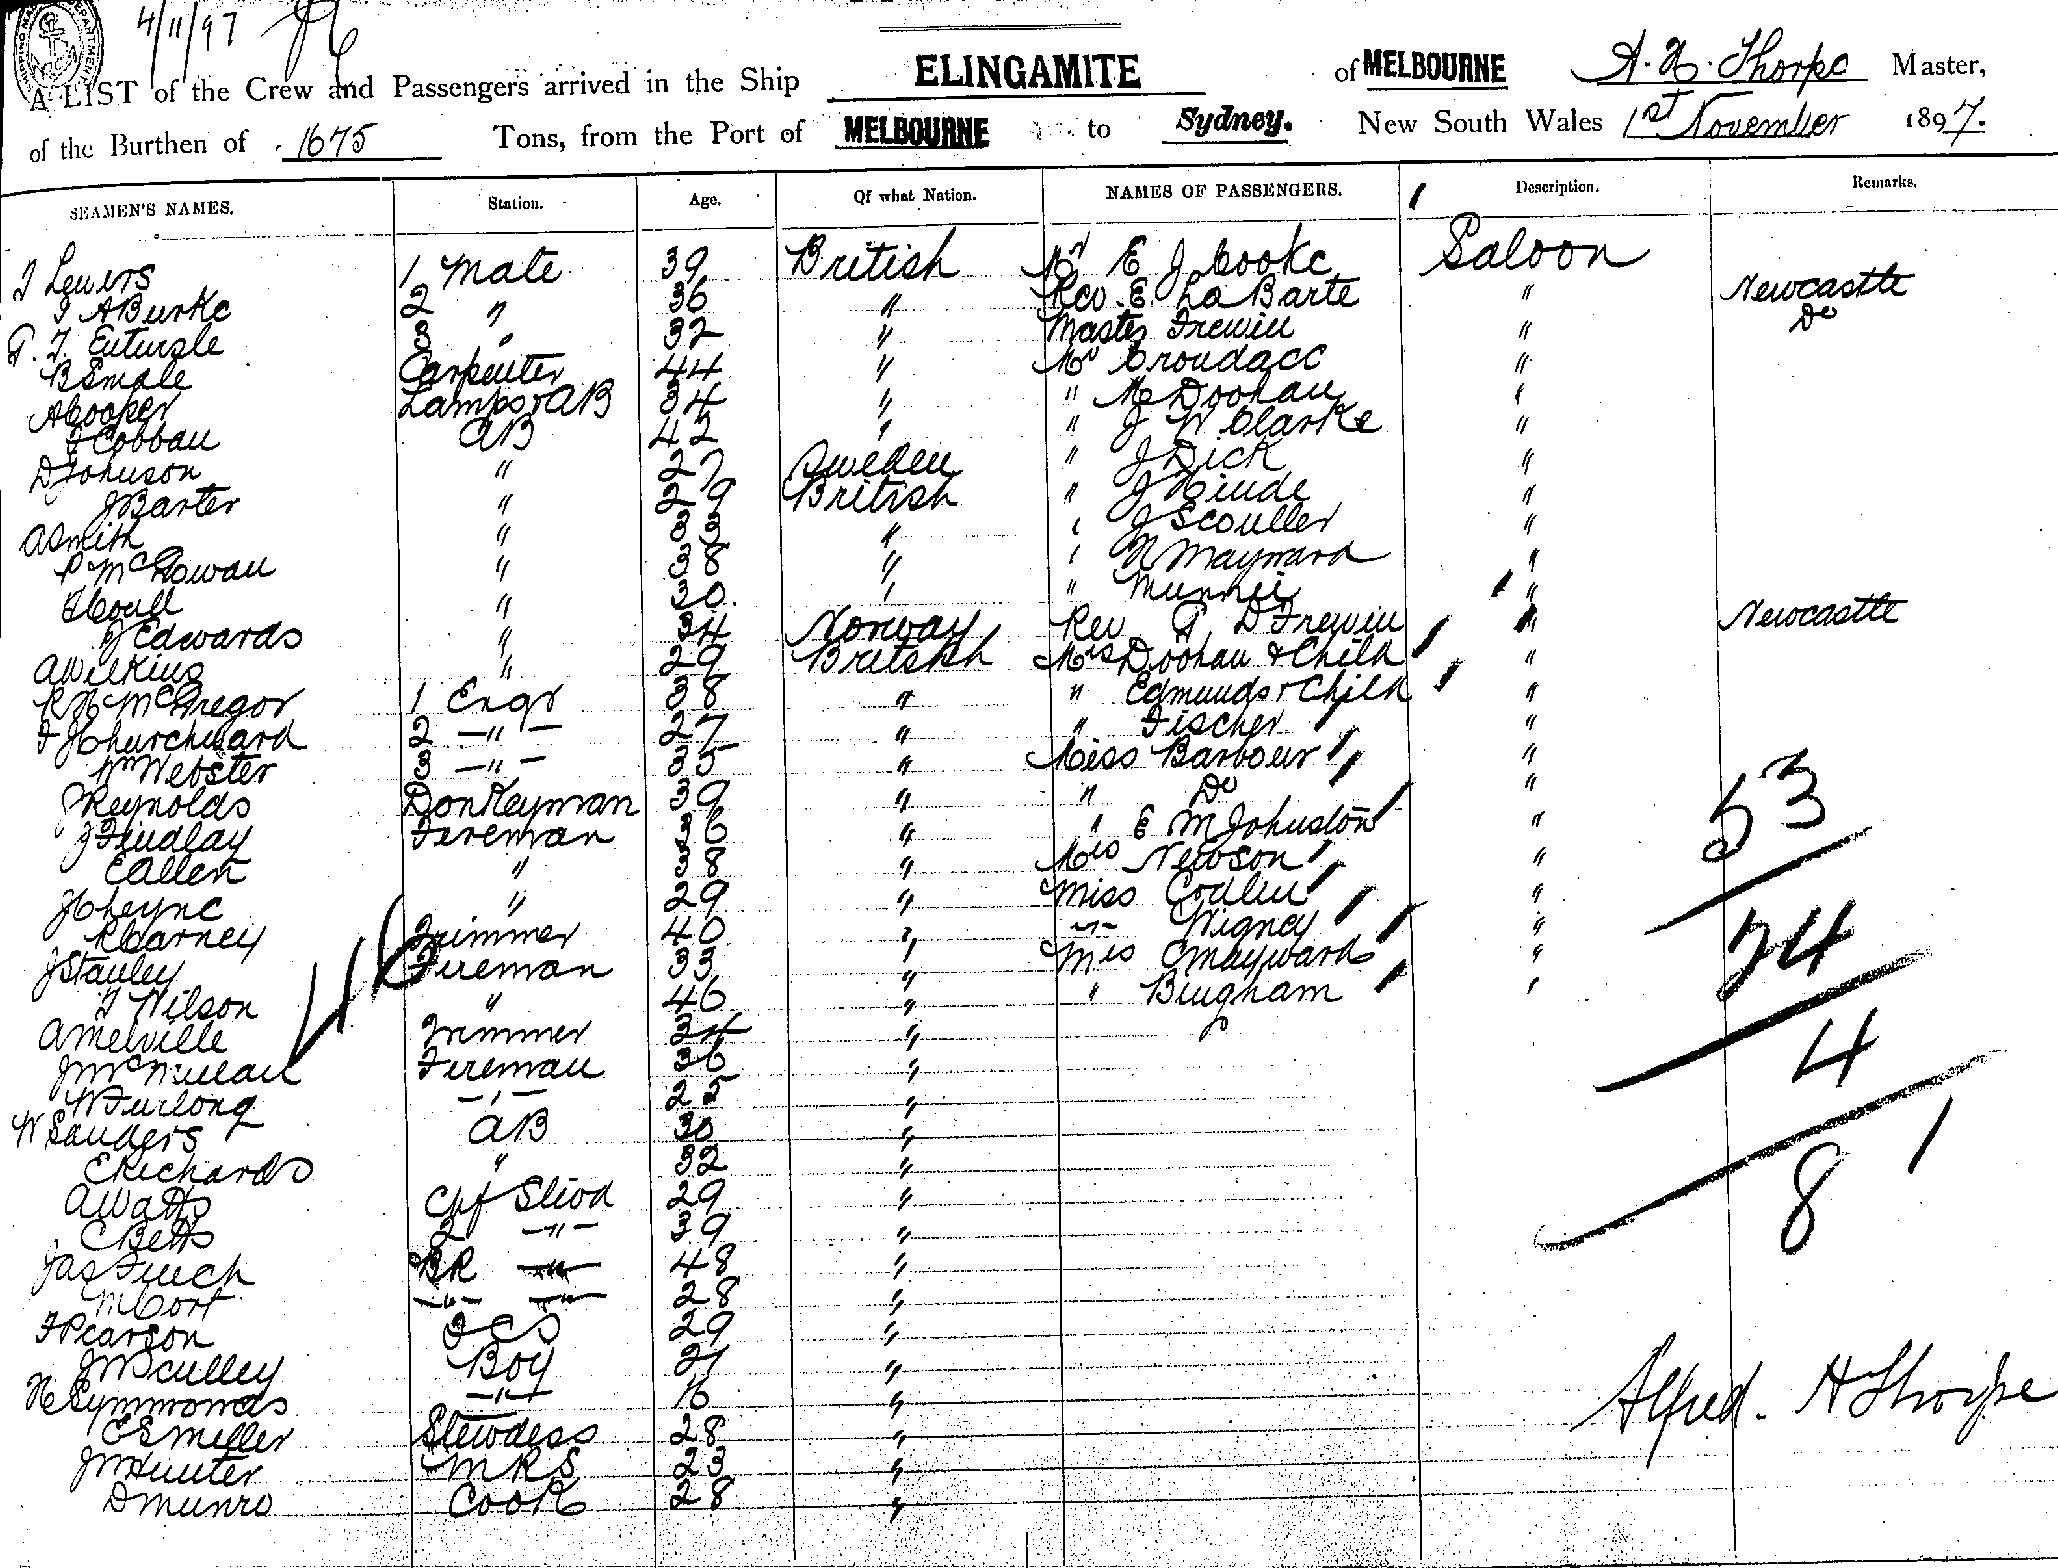 4/11/97
A LIST of the Crew and Passengers arrived in the Ship ELINGAMITE of MELBOURNE A. H. Thorpe Master,
of the Burthen of 1675 Tons, from the Port of MELBOURNE to Sydney. New South Wales 1st November 1897.
SEAMEN'S NAMES. Station. Age. Of what Nation. NAMES OF PASSENGERS. Description. Remarks.
1 Mate 39 British Mr E J Cooke Saloon
A Burke 2 " 36 " Rev. E. La Barte " Newcastle
3 " 32 " Master Frewin " Do
B Smale Carpenter 44 " Mr Croudace "
A Cooper Lamps & AB 34 " " Doohan "
Cobban AB 42 " " J W Clarke "
D Johnson " 27 Sweden " J Dick "
J Barter " 29 British " J Hinde "
A Smith " 33 " " J Scouller "
P McGowan " 38 " " Maynard "
" 30 " " "
J Edwards " 34 Norway Rev G. D Frewin " Newcastle
A Wilkins " 29 British Mrs Doohan & Child "
R H McGregor 1 Engr 38 " " Edmunds & Child "
F J Churchward 2 -"- 27 " " Fischer "
Wm Webster 3 -"- 35 " Miss Barbour "
J Reynolds Donkeyman 39 " " Do "
J Findlay Fireman 36 " " E M Johnston "
E Allen " 38 " Mrs Newson "
J Cheyne " 29 " Miss Codlin "
R Carney Trimmer 40 " -"- Wigney "
J Stanley Fireman 33 " Mrs C Mayward "
T Wilson " 46 " " Bingham "
A Melville Trimmer 24 "
Fireman 36 "
W Furlong -"- 25 "
W Sanders AB 30 "
E Richards " 32 "
A Watts Chf Stwd 29 "
C Betts 2 -"- 39 "
Jas Finch BR -"- 48 "
M Cort -"- -"- 28 "
F Pearson FCS 29 "
J W Sculley Boy 21 "
H Symmonds -"- 16 "
E S Miller Stewdess 28 "
J W Hunter MRS 23 "
D Munro Cook 28 "
46
53
24
4
81
Alfred. H Thorpe